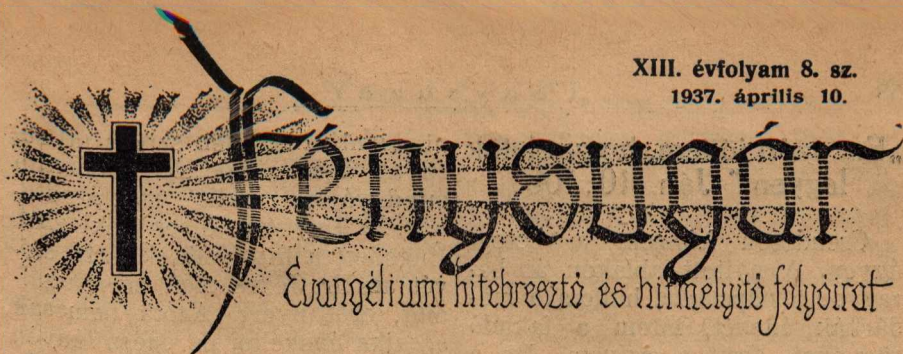 XIII. évfolyam 8. sz.
1937. április 10.
Fénysugár
Evangéliumi hitébresztő és hitmélyitő folyóirat